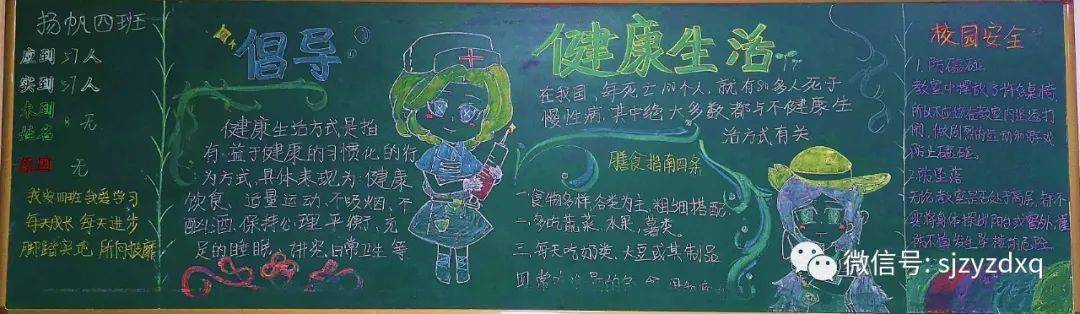 扬帆四班
应到57人
实到57人
未到
姓名：无
无
我爱四班 我爱学习
每天成长 每天进步
脚踏实地 所向披靡
倡导
健康生活方式是指
有益于健康的习惯化的行
为方式,具体表现为:健康
饮食、适量运动、不吸烟、不
酗酒、保持心理平衡、充
足的睡眠、讲究日常卫生等
健康生活
在我国,每死亡100个人,就有80多人死于
慢性病,其中绝大多数都与不健康生
活方式有关
膳食指南四条
一.食物多样,谷类为主,粗细搭配
二.多吃蔬菜、水果、薯类
三.每天吃奶类、大豆或其制品
四.常
校园安全
1.防磕碰
教室中摆放了许多桌椅,
所以不应该在教室内追逐打
闹,做剧烈的运动和游戏
防止磕碰。
2.防坠落
无论教室是否处于高层,都不
要将身体探出阳台或窗外,谨
防不慎发生坠楼的危险
微信号: sjzyzdxq